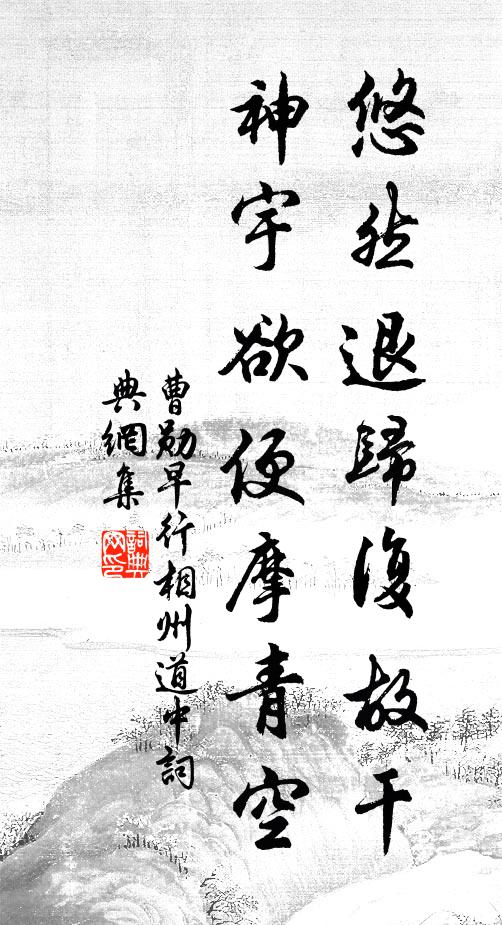 悠然退歸復故干
神宇欲便摩青空
曹勛早行相州道中詞
典網集
詞典網印